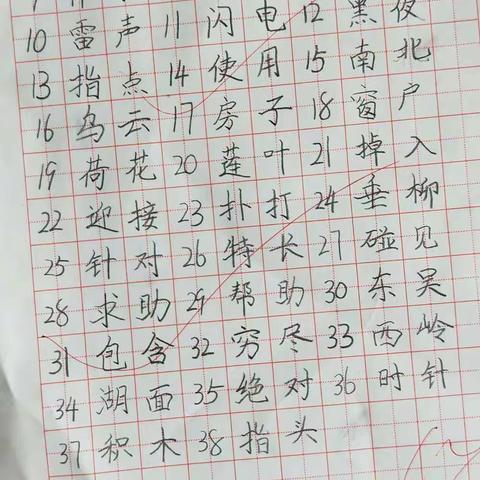 10 雷声 11 闪电 12 黑夜
13 指点 14 使用 15 南北
16 乌云 17 房子 18 窗户
19 荷花 20 莲叶 21 掉入
22 迎接 23 扑打 24 垂柳
25 针对 26 特长 27 碰见
28 求助 29 帮助 30 东吴
31 包含 32 穷尽 33 西岭
34 湖面 35 绝对 36 时针
37 积木 38 指头